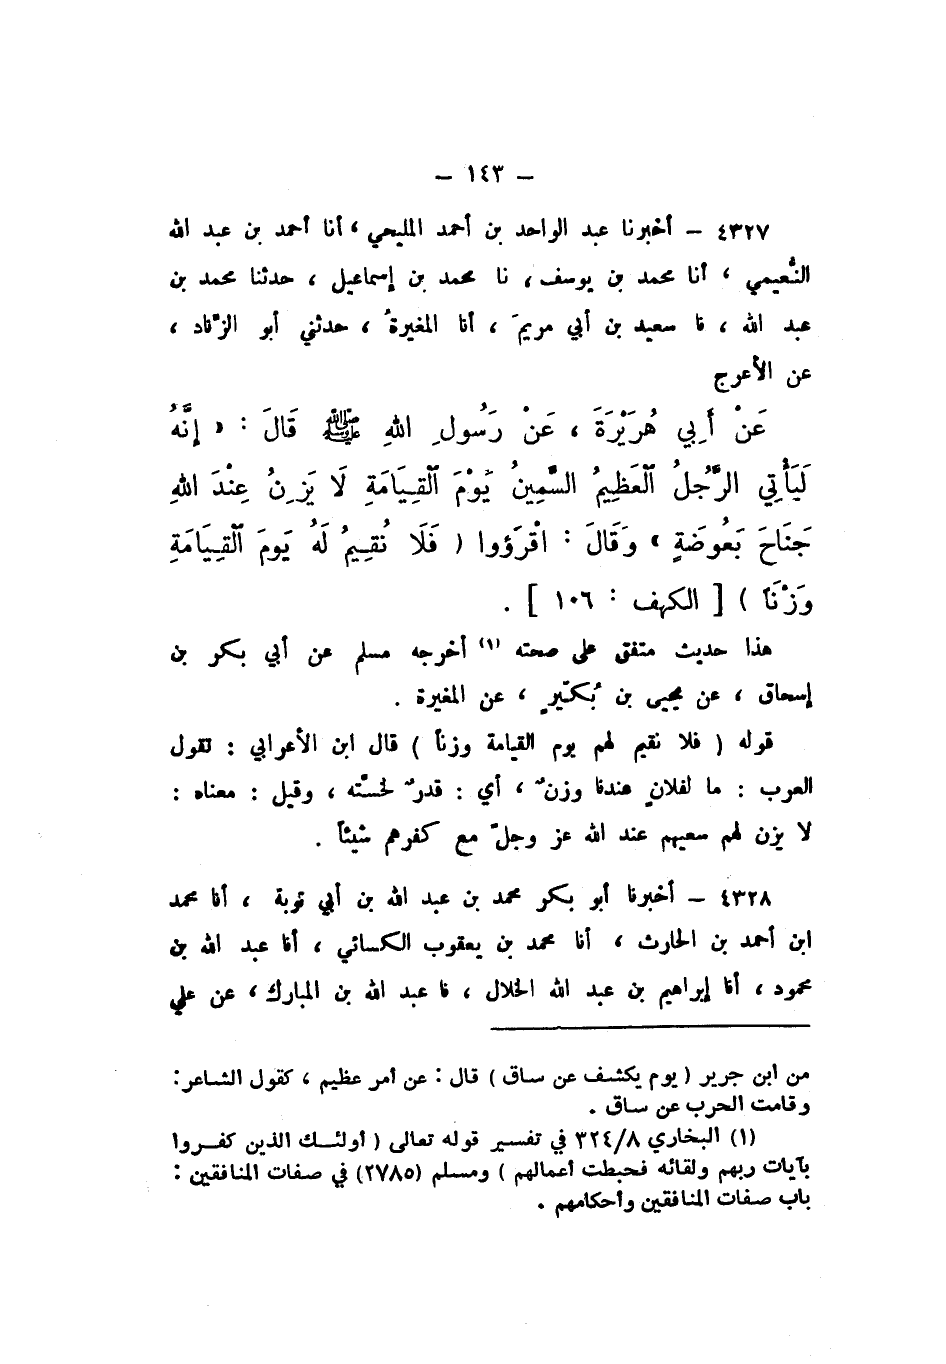 – ١٤٣ –
٤٣٢٧ – أخبرنا عبد الواحد بن أحمد المليحي ، أنا أحمد بن عبد الله
النُّعيمي ، أنا محمد بن يوسف ، نا محمد بن إسماعيل ، حدثنا محمد بن
عبد الله ، نا سعيد بن أبي مريمَ ، أنا المغيرةُ ، حدثني أبو الزِّناد ،
عن الأعرج
عَنْ أَبِي هُرَيْرَةَ ، عَنْ رَسُولِ اللهِ ﷺ قَالَ : « إِنَّهُ
لَيَأْتِي الرَّجُلُ ٱلْعَظِيمُ السَّمِينُ يَوْمَ ٱلْقِيَامَةِ لَا يَزِنُ عِنْدَ اللهِ
جَنَاحَ بَعُوضَةٍ » وَقَالَ : اقْرَؤوا ( فَلَا نُقِيمُ لَهُ يَومَ ٱلْقِيَامَةِ
وَزْنَاً ) [ الكهف : ١٠٦ ] .
هذا حديث متفق على صحته (١) أخرجه مسلم عن أبي بكر بن
إسحاق ، عن يحيى بن بُكَيْرٍ ، عن المغيرة .
قوله ( فلا نقيم لهم يوم القيامة وزناً ) قال ابن الأعرابي : تقول
العرب : ما لفلانٍ عندنا وزنٌ ، أي : قدرٌ لخسَّته ، وقيل : معناه :
لا يزن لهم سعيهم عند الله عز وجلّ مع كفرهم شيئاً .
٤٣٢٨ – أخبرنا أبو بكر محمد بن عبد الله بن أبي توبة ، أنا محمد
ابن أحمد بن الحارث ، أنا محمد بن يعقوب الكسائي ، أنا عبد الله بن
محمود ، أنا إبراهيم بن عبد الله الخلال ، نا عبد الله بن المبارك ، عن علي
من ابن جرير ( يوم يكشف عن ساق ) قال : عن أمر عظيم ، كقول الشاعر :
وقامت الحرب عن ساق .
(١) البخاري ٣٢٤/٨ في تفسير قوله تعالى ( أولئك الذين كفروا
بآيات ربهم ولقائه فحبطت أعمالهم ) ومسلم (٢٧٨٥) في صفات المنافقين :
باب صفات المنافقين وأحكامهم .